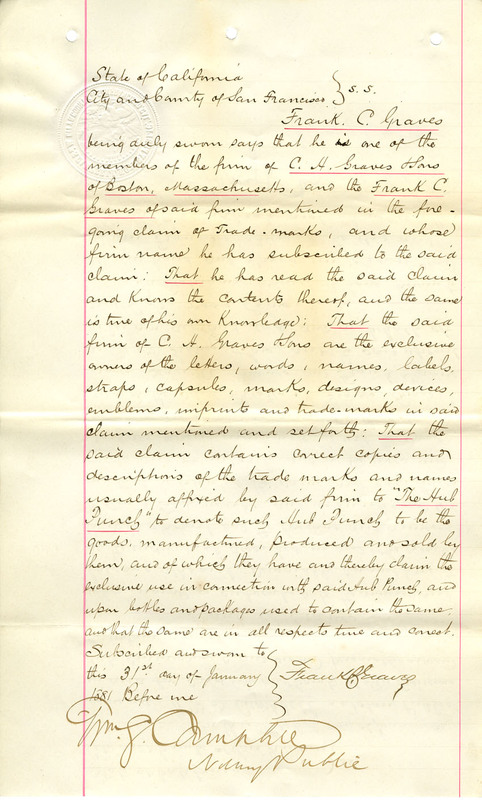 State of California
City and County of San Francisco } s.s.
Frank. C. Graves
being duly sworn says that he is one of the
members of the firm of C. H. Graves & Sons
of Boston, Massachusetts, and the Frank C.
Graves of said firm mentioned in the fore-
going claim of Trade-marks, and whose
firm name he has subscribed to the said
claim: That he has read the said claim
and Knows the contents thereof, and the same
is true of his own Knowledge: That the said
firm of C. H. Graves & Sons are the exclusive
owners of the letters, words, names, labels,
straps, capsules, marks, designs, devices,
emblems, imprints and trade-marks in said
claim mentioned and set forth: That the
said claim contains correct copies and
descriptions of the trade marks and names
usually affixed by said firm to "The Hub
Punch" to denote such Hub Punch to be the
goods, manufactured, produced and sold by
them, and of which they have and thereby claim the
exclusive use in connection with said Hub Punch, and
upon bottles and packages used to contain the same,
and that the same are in all respects true and correct.
Subscribed and sworn to
this 31st day of January } Frank C Graves
1881 Before me
Wm. J.
Notary Public